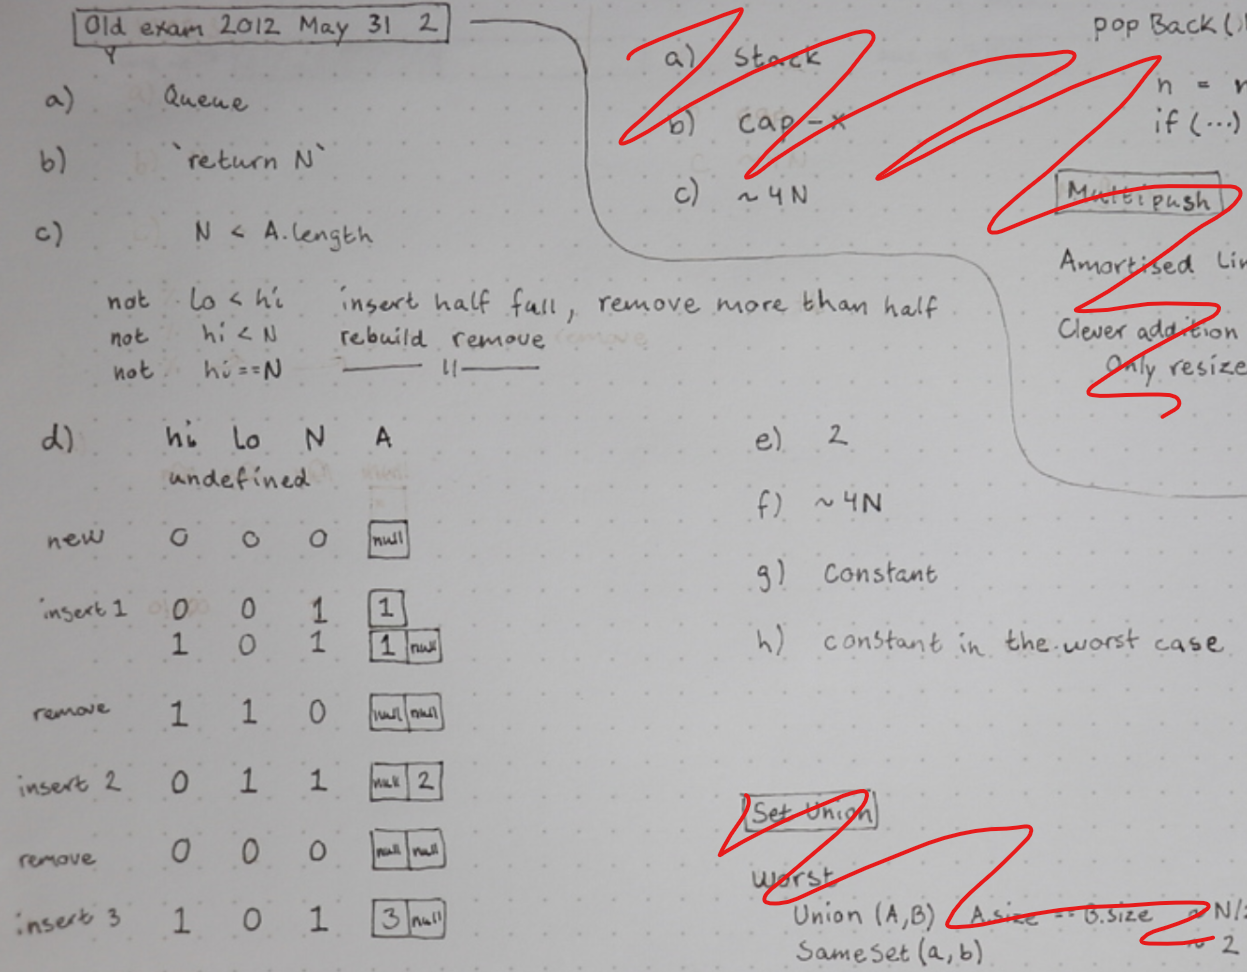 Old exam 2012 May 31 2
a) Queue
b) `return N`
c) N < A.length
not lo < hi insert half full, remove more than half
not hi < N rebuild remove
not hi == N —— 11 ——
d) hi lo N A
undefined
new 0 0 0 null
insert 1 0 0 1 1
1 0 1 1 null
remove 1 1 0 null null
insert 2 0 1 1 null 2
remove 0 0 0 null null
insert 3 1 0 1 3 null
a) Stack
b) cap - x
c) ~4N
e) 2
f) ~4N
g) constant
h) constant in the worst case
pop Back()
n =
if (...)
Multipush
Amortised
Clever addition
Only resize
Set Union
Worst
Union (A,B) A.size == B.size ~N/
SameSet (a,b) ~ 2